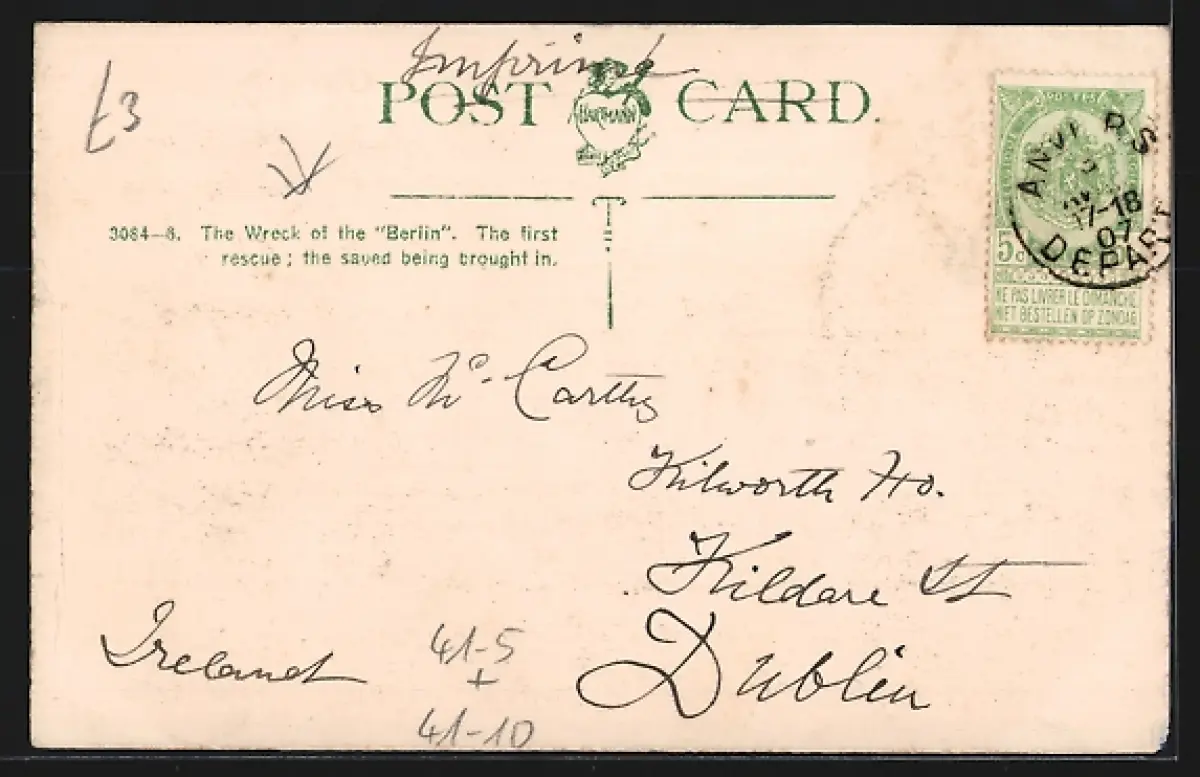 Imprimé
£3
POST CARD.
HARTMANN
3064—6. The Wreck of the "Berlin". The first
rescue ; the saved being brought in.
POSTES
ANVERS
17-18
07
DEPART
5c
NE PAS LIVRER LE DIMANCHE
NIET BESTELLEN OP ZONDAG
Miss Mc Carthy
Kilworth Ho.
Kildare St
Dublin
Ireland
41-5
+
41-10